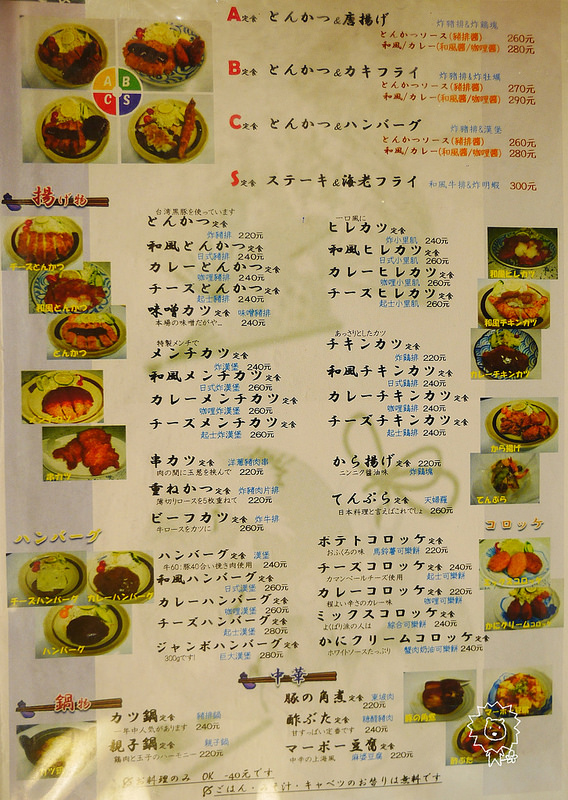 A定食 とんかつ&唐揚げ 炸豬排&炸雞塊
とんかつソース(豬排醬) 260元
和風/カレー(和風醬/咖哩醬) 280元
B定食 とんかつ&カキフライ 炸豬排&炸牡蠣
とんかつソース(豬排醬) 270元
和風/カレー(和風醬/咖哩醬) 290元
C定食 とんかつ&ハンバーグ 炸豬排&漢堡
とんかつソース(豬排醬) 260元
和風/カレー(和風醬/咖哩醬) 280元
S定食 ステーキ&海老フライ 和風牛排&炸明蝦 300元
A B
C S
揚げ物
台湾黒豚を使っています
とんかつ定食
炸豬排 220元
和風とんかつ定食
日式豬排 240元
カレーとんかつ定食
咖哩豬排 240元
チーズとんかつ定食
起士豬排 240元
味噌カツ定食 味噌豬排
本場の味噌だがや... 240元
一口風に
ヒレカツ定食
炸小里肌 240元
和風ヒレカツ定食
日式小里肌 260元
カレーヒレカツ定食
咖哩小里肌 260元
チーズヒレカツ定食
起士小里肌 260元
特製メンチで
メンチカツ定食
炸漢堡 240元
和風メンチカツ定食
日式炸漢堡 260元
カレーメンチカツ定食
咖哩炸漢堡 260元
チーズメンチカツ定食
起士炸漢堡 260元
あっさりとしたカツ
チキンカツ定食
炸雞排 220元
和風チキンカツ定食
日式雞排 240元
カレーチキンカツ定食
咖哩雞排 240元
チーズチキンカツ定食
起士雞排 240元
串カツ定食 洋蔥豬肉串
肉の間に玉葱を挟んで 220元
重ねかつ定食 炸豬肉片排
薄切りロースを5枚重ねて 220元
ビーフカツ定食 炸牛排
牛ロースをカツに 260元
から揚げ定食 220元
ニンニク醤油味 炸雞塊
てんぷら定食 天婦羅
日本料理と言えばこれでしょ 260元
チーズとんかつ
和風とんかつ
とんかつ
串カツ
和風ヒレカツ
和風チキンカツ
カレーチキンカツ
から揚げ
てんぷら
ハンバーグ
ハンバーグ定食 漢堡
牛60:豚40合い挽き肉使用 240元
和風ハンバーグ定食
日式漢堡 260元
カレーハンバーグ定食
咖哩漢堡 260元
チーズハンバーグ定食
起士漢堡 280元
ジャンボハンバーグ定食
300gです! 巨大漢堡 280元
チーズハンバーグ
カレーハンバーグ
ハンバーグ
コロッケ
ポテトコロッケ定食
おふくろの味 馬鈴薯可樂餅 220元
チーズコロッケ定食 240元
カマンベールチーズ使用 起士可樂餅
カレーコロッケ定食 220元
程よい辛さのカレー味 咖哩可樂餅
ミックスコロッケ定食
よくばり派の人は 綜合可樂餅 240元
かにクリームコロッケ定食
ホワイトソースたっぷり 蟹肉奶油可樂餅 240元
ミックスコロッケ
かにクリームコロッケ
鍋物
カツ鍋定食 豬排鍋
一年中人気があります 240元
親子鍋定食 親子鍋
鶏肉と玉子のハーモニー 220元
中華
豚の角煮定食 東坡肉
220元
酢ぶた定食 糖醋豬肉
甘すっぱい定番です 240元
マーボー豆腐定食
中辛の上海風 麻婆豆腐 220元
豚の角煮
酢ぶた
お料理のみ OK -40元です
ごはん・みそ汁・キャベツのお替りは無料です